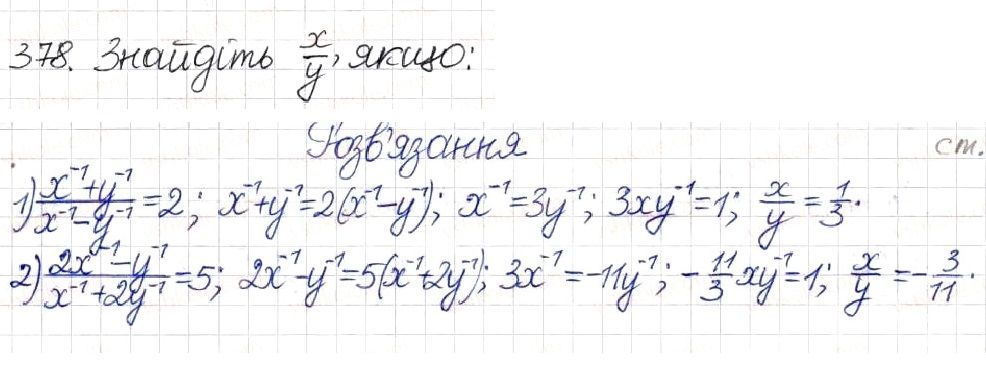 378. Знайдіть x/y, якщо:
Розв'язання ст.
1) (x⁻¹+y⁻¹)/(x⁻¹−y⁻¹) = 2; x⁻¹+y⁻¹=2(x⁻¹−y⁻¹); x⁻¹=3y⁻¹; 3xy⁻¹=1; x/y = 1/3.
2) (2x⁻¹−y⁻¹)/(x⁻¹+2y⁻¹) = 5; 2x⁻¹−y⁻¹=5(x⁻¹+2y⁻¹); 3x⁻¹=−11y⁻¹; −11/3 xy⁻¹=1; x/y = −3/11.